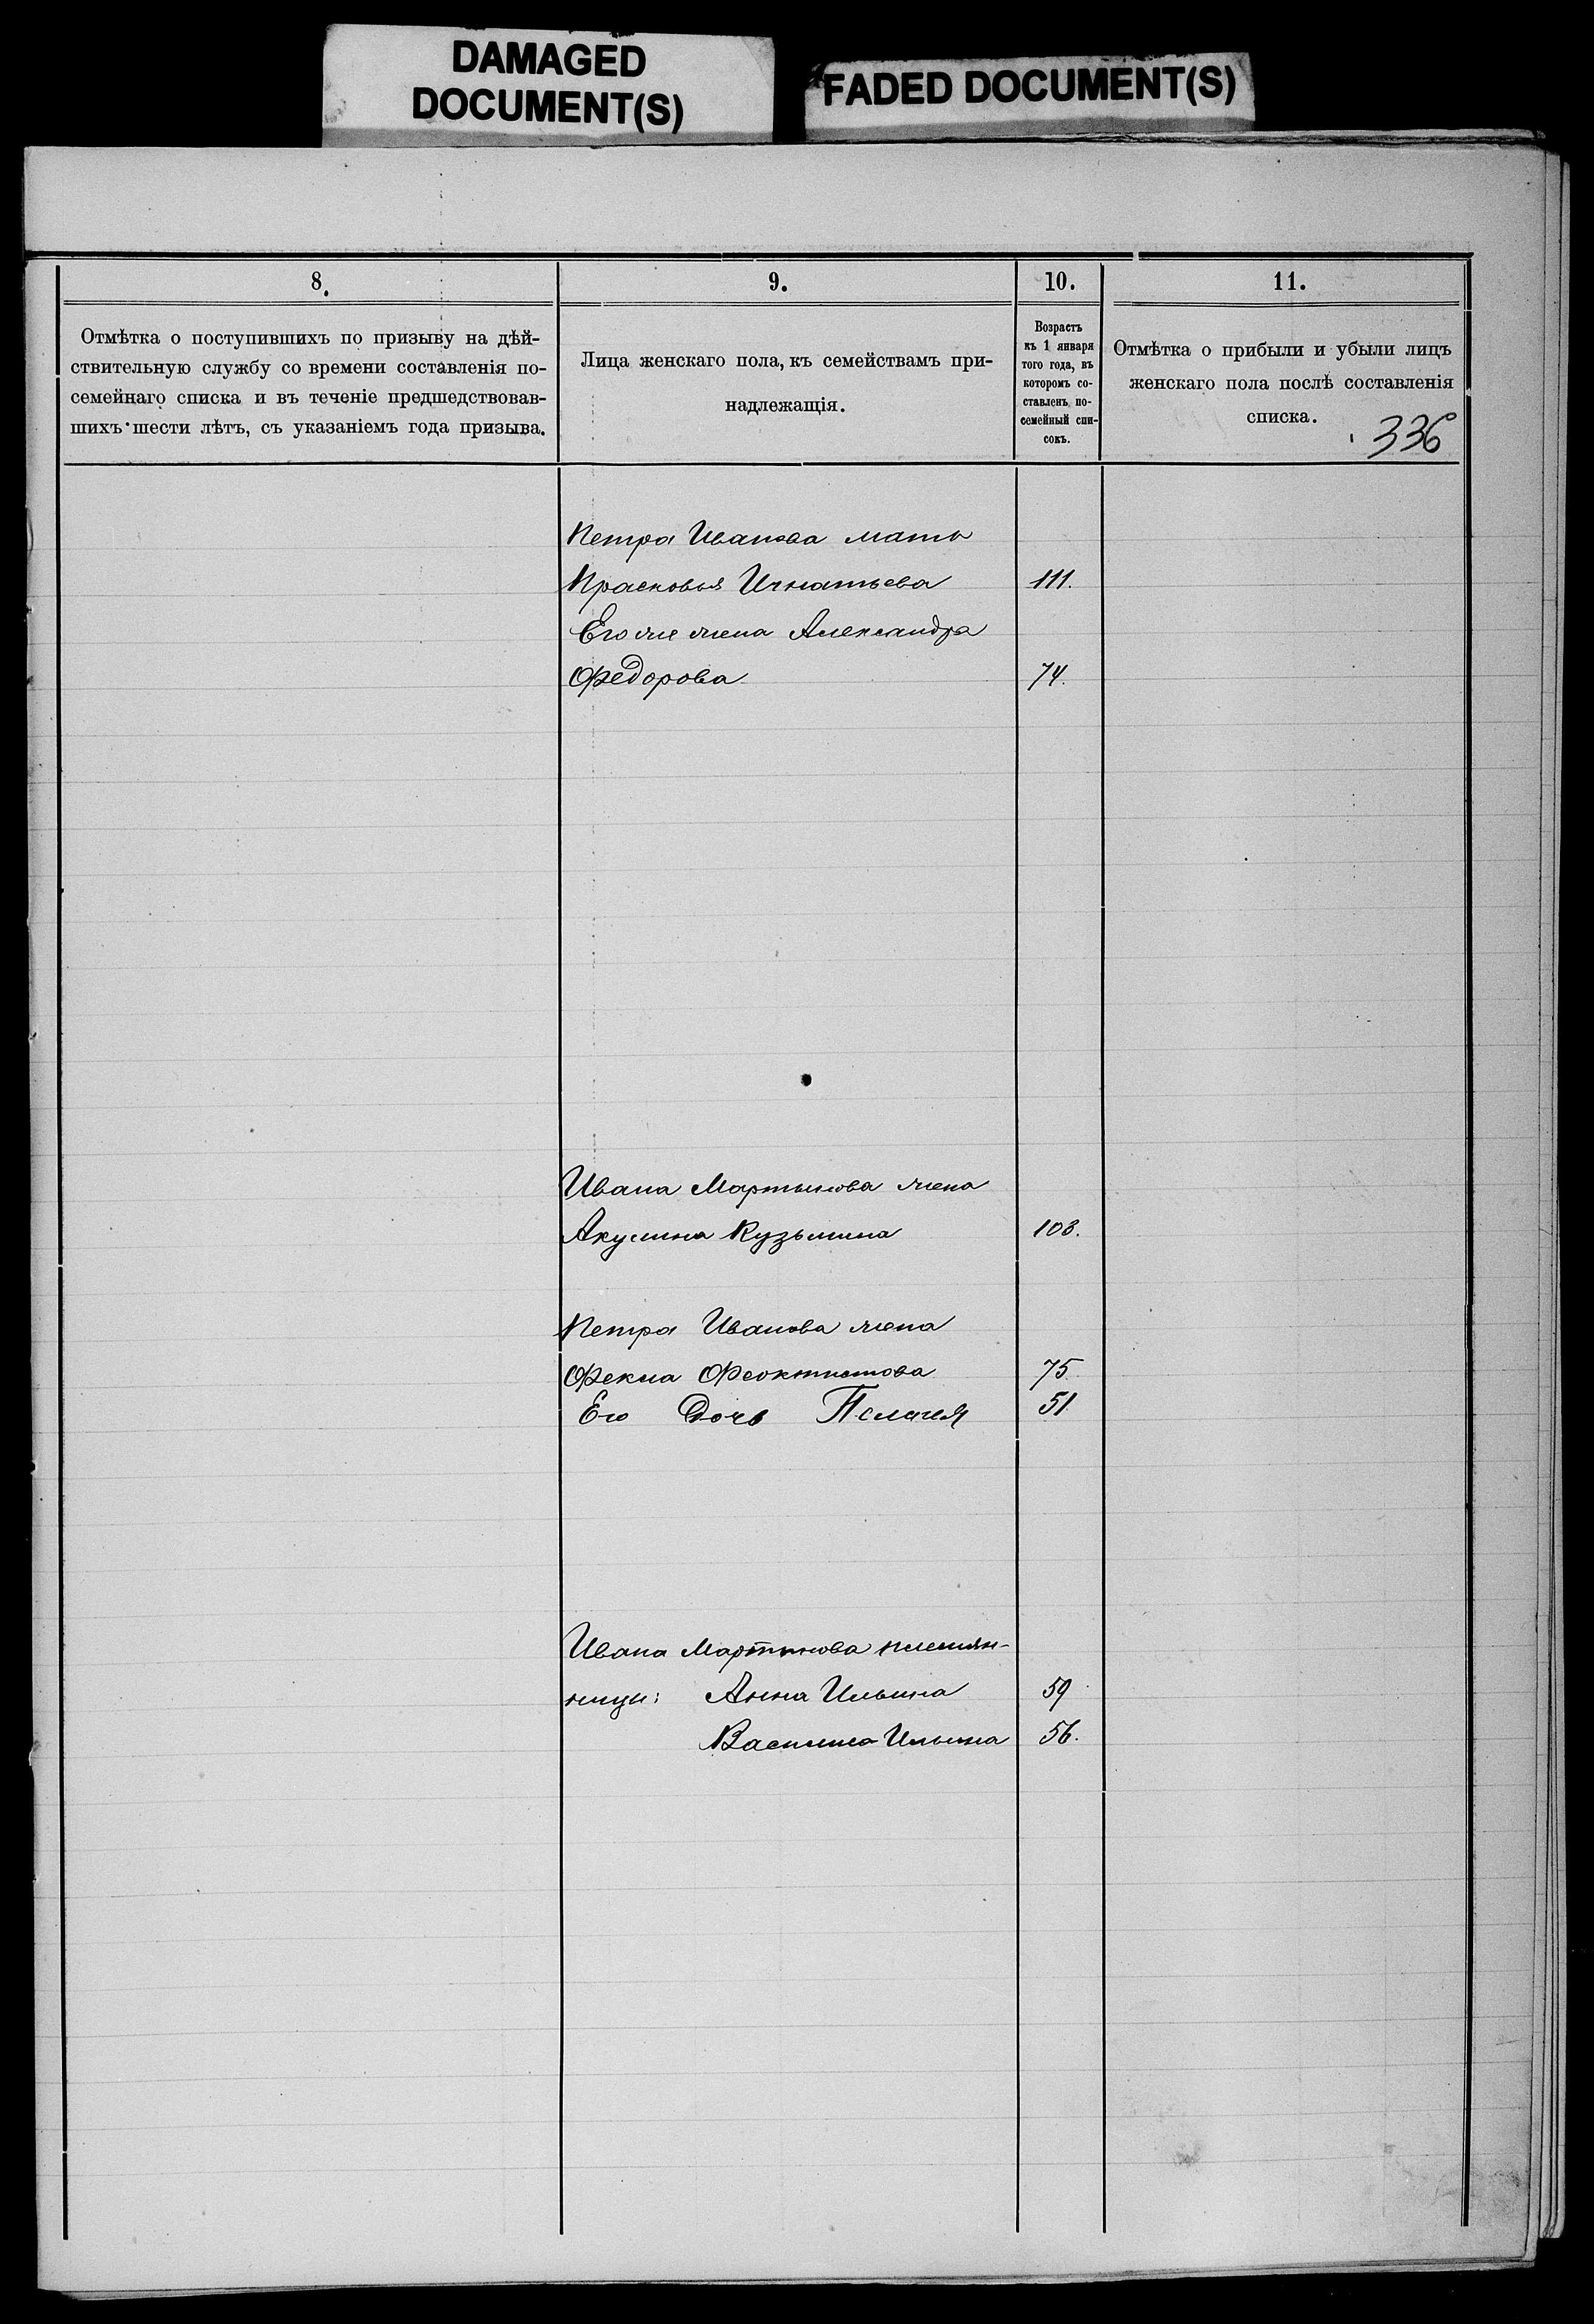 DAMAGED
DOCUMENT(S)
FADED DOCUMENT(S)
8.
Отмѣтка о поступившихъ по призыву на дѣй-
ствительную службу со времени составленія по-
семейнаго списка и въ теченіе предшедствовав-
шихъ шести лѣтъ, съ указаніемъ года призыва.
9.
Лица женскаго пола, къ семействамъ при-
надлежащія.
10.
Возрастъ
къ 1 января
того года, въ
которомъ со-
ставленъ по-
семейный спи-
сокъ.
11.
Отмѣтка о прибыли и убыли лицъ
женскаго пола послѣ составленія
списка.
336
Петра Иванова мать
Прасковья Игнатьева 111.
Его же жена Александра
Федорова 74.
Ивана Мартынова жена
Акулина Кузьмина 103.
Петра Иванова жена
Фекла Феоктистова 75
Его Дочь Пелагея 51
Ивана Мартынова племян-
ницы: Анна Ильина 59
Василиса Ильина 56.